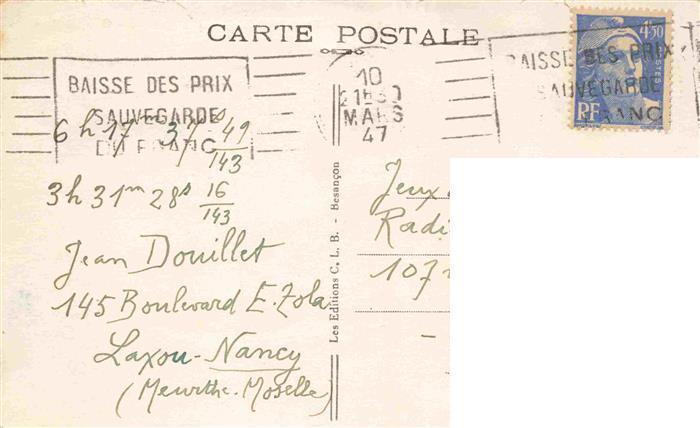 CARTE POSTALE
BAISSE DES PRIX
SAUVEGARDE
DU FRANC
10
MARS
47
BAISSE DES PRIX
SAUVEGARDE
FRANC
4f50
POSTES
RF
6h 17m 37s 49/143
3h 31m 28s 16/143
Jean Douillet
145 Boulevard E. Zola
Laxou-Nancy
(Meurthe-Moselle)
Les Editions C. L. B. - Besançon
Jeux
Radi
107